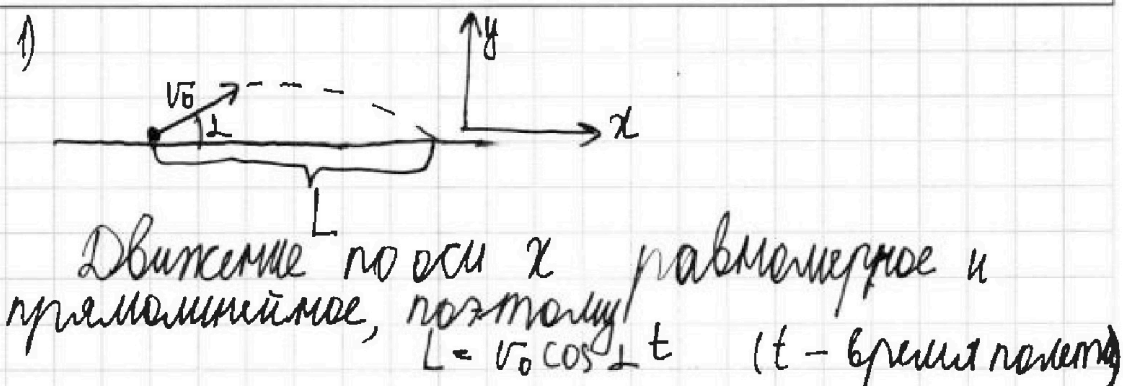 1)
y
v₀
α
x
L
Движение по оси x равномерное и
прямолинейное, поэтому
L = v₀ cos α t (t - время полета)